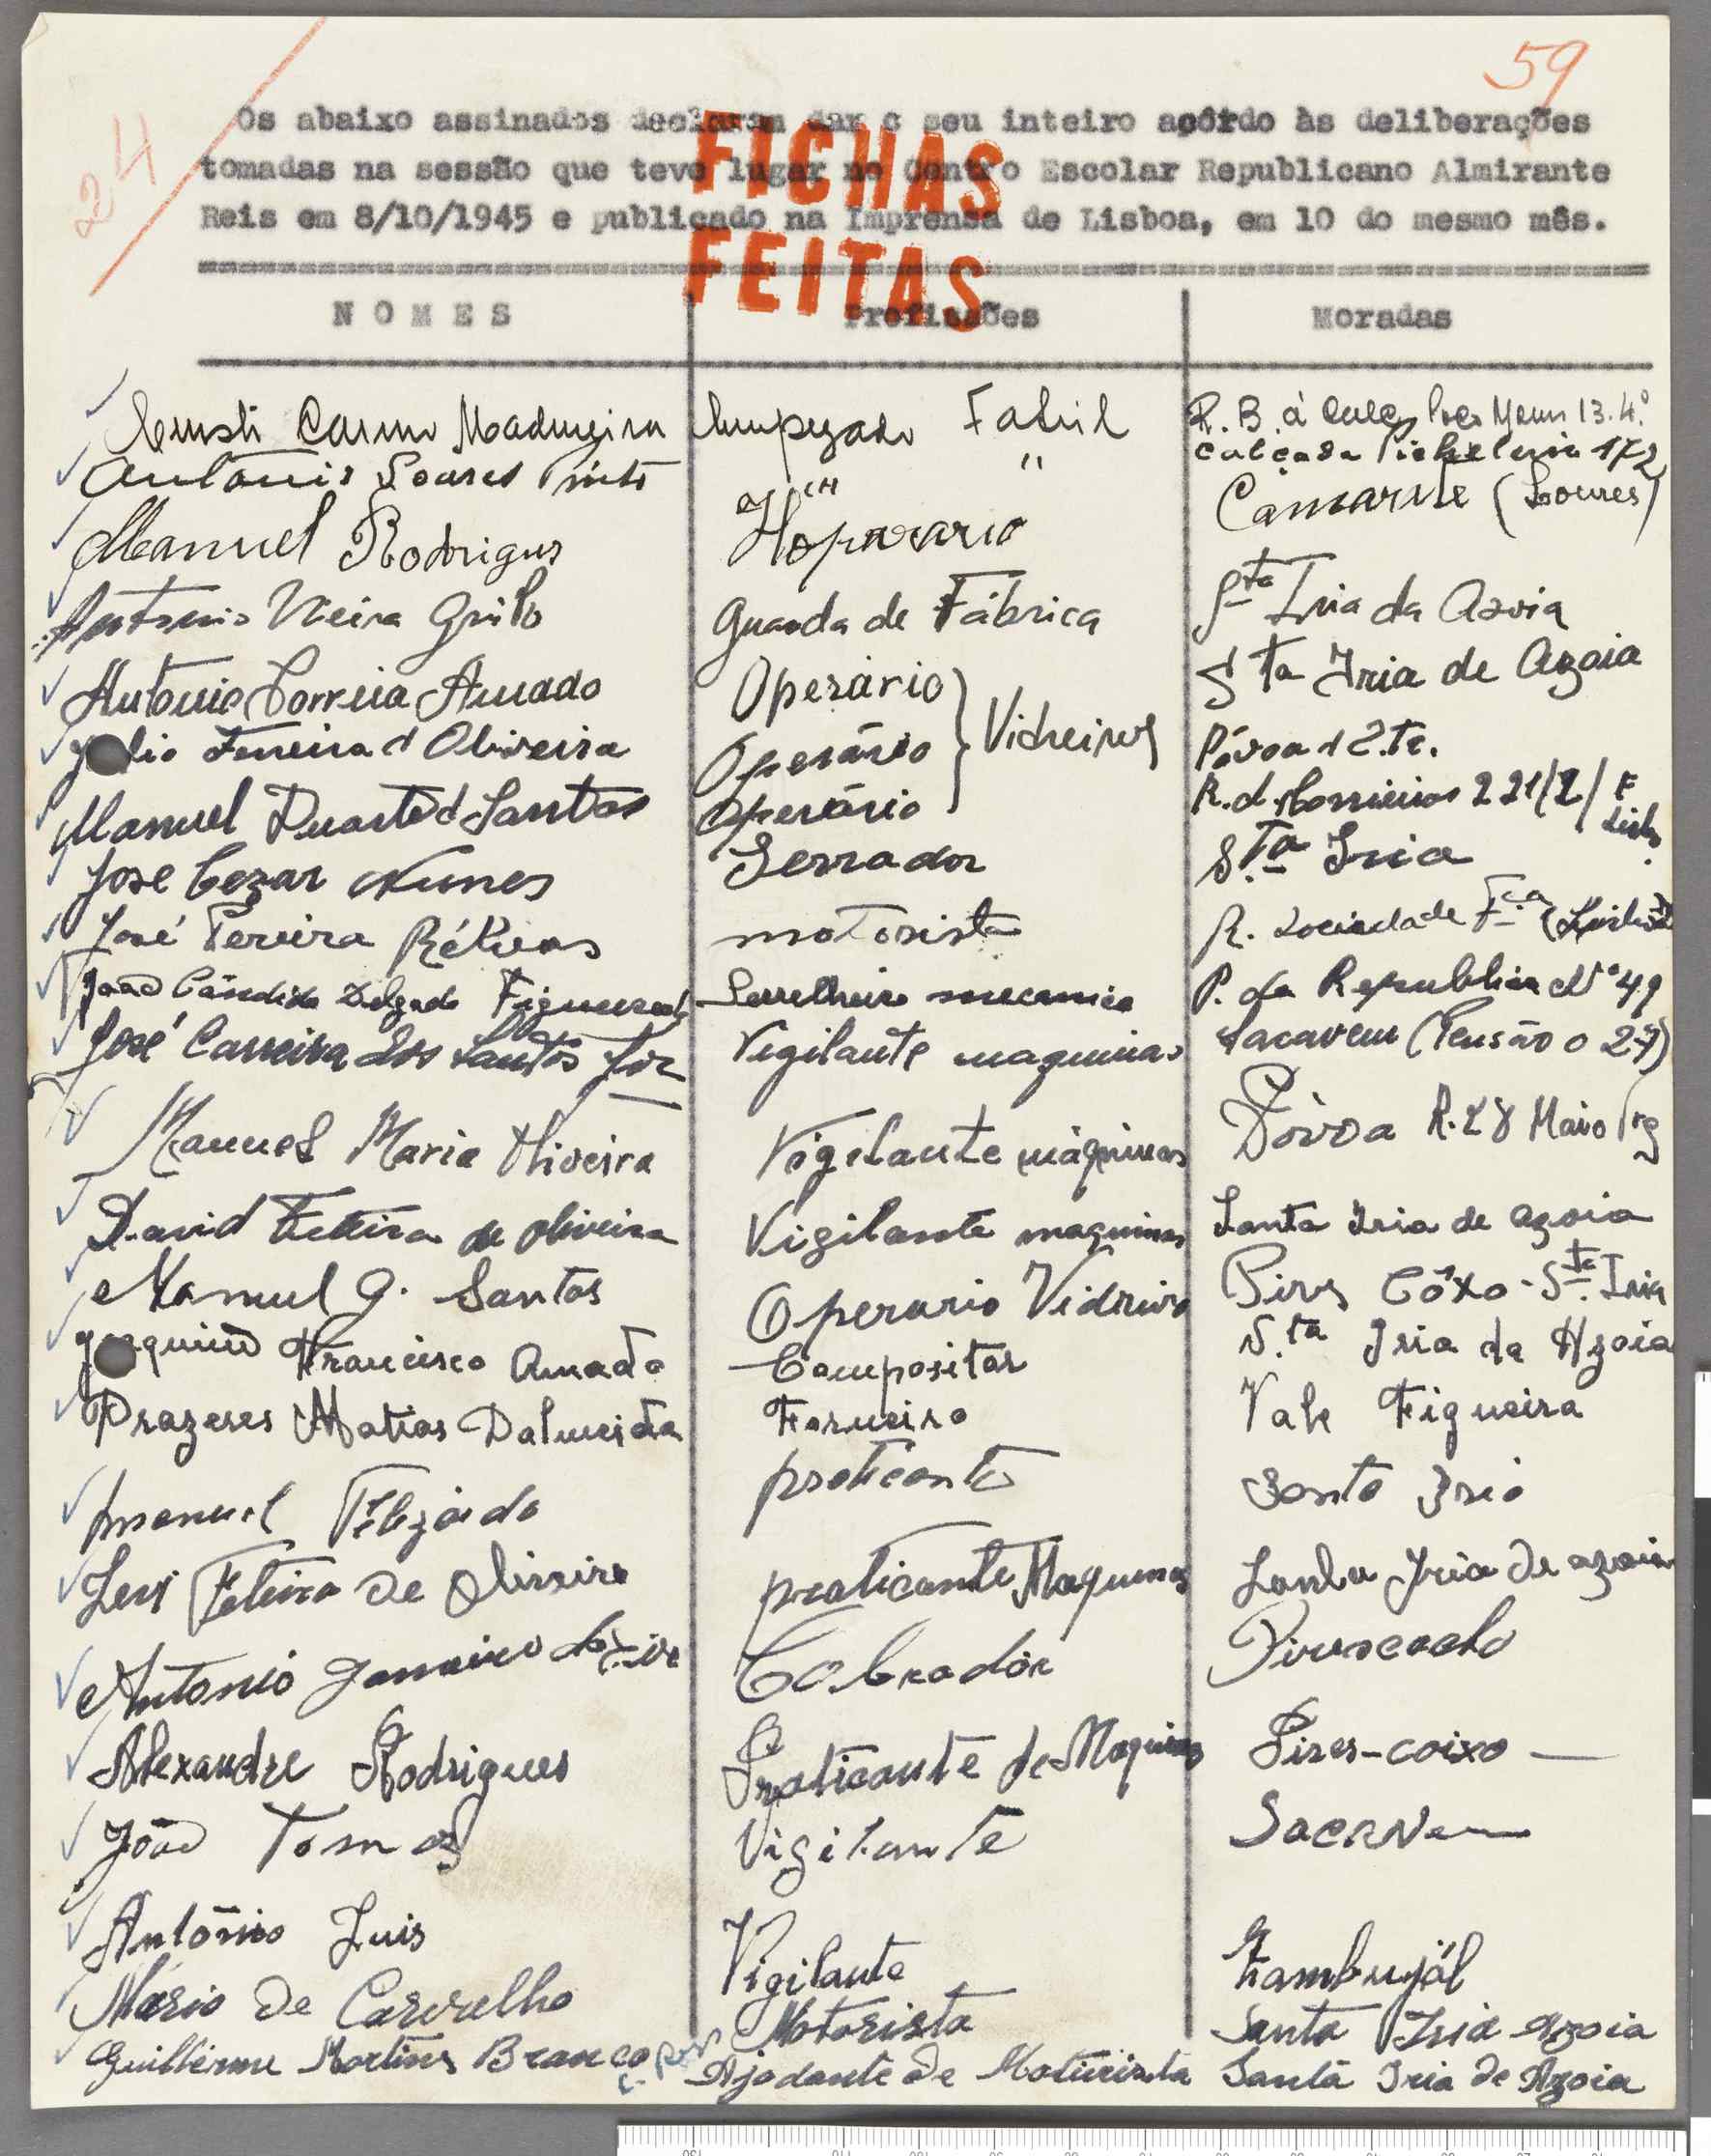 59
24
Os abaixo assinados declaram dar o seu inteiro acôrdo às deliberações
tomadas na sessão que teve lugar no Centro Escolar Republicano Almirante
Reis em 8/10/1945 e publicado na Imprensa de Lisboa, em 10 do mesmo mês.
FICHAS
FEITAS
NOMES Profissões Moradas
Carmo Madureira Empregado Fabril R. B. á 13.4º
Antonio Soares Pinto " " Calçada 172
Manuel Rodrigues Hoparario Camarate (Loures)
Antonio Vieira Grilo Guarda de Fábrica Sta Iria da Azoia
Antonio Correia Amado Operário Vidreiros Sta Iria de Azoia
Julio Ferreira d'Oliveira Operário Póvoa d
Manuel Duarte d Santos Operário R. d. Correeiros 221/2/ E Lisboa
Jose Cezar Nunes Serrador S.ta Iria
José Pereira motorista R. Sociedade
João Cândido Delgado Figueiredo Serrelheiro mecanico P. da Republica Nº 49
José Carreira dos Santos Jor Vigilante maquinas Sacavem (Pensão o 27)
Manuel Maria Oliveira Vigilante máquinas Póvoa R. 28 Maio
David Teteira de Oliveira Vigilante maquinas Santa Iria de Azoia
Manuel G. Santos Operario Vidreiro Pires Côxo - S.ta Iria
Joaquim Francisco Amado Compositor S.ta Iria da Azoia
Prazeres Matias Dalmeida Forneiro Vale Figueira
Manuel praticante Santa Iria
Teteira de Oliveira praticante Maquinas Santa Iria de azoia
Antonio Janeiro Cobradôr
Alexandre Rodrigues Praticante de Maquinas Pires-coixo
João Tomas Vigilante Sacavem
António Luis Vigilante Zambujal
Mário de Carvalho Motorista Santa Iria Azoia
Guilherme Martins Branco Ajodante de Motorista Santa Iria de Azoia